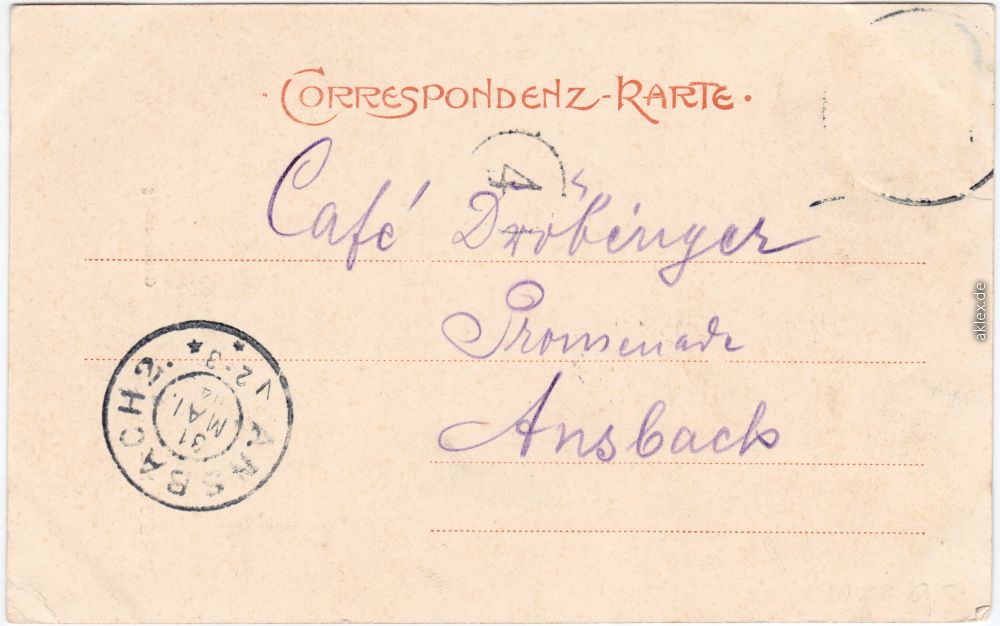 · CORRESPONDENZ-KARTE ·
4
Café Dröbinger
Promenade
Ansbach
ANSBACH 2.
31
MAI.
V 2-3
aklex.de